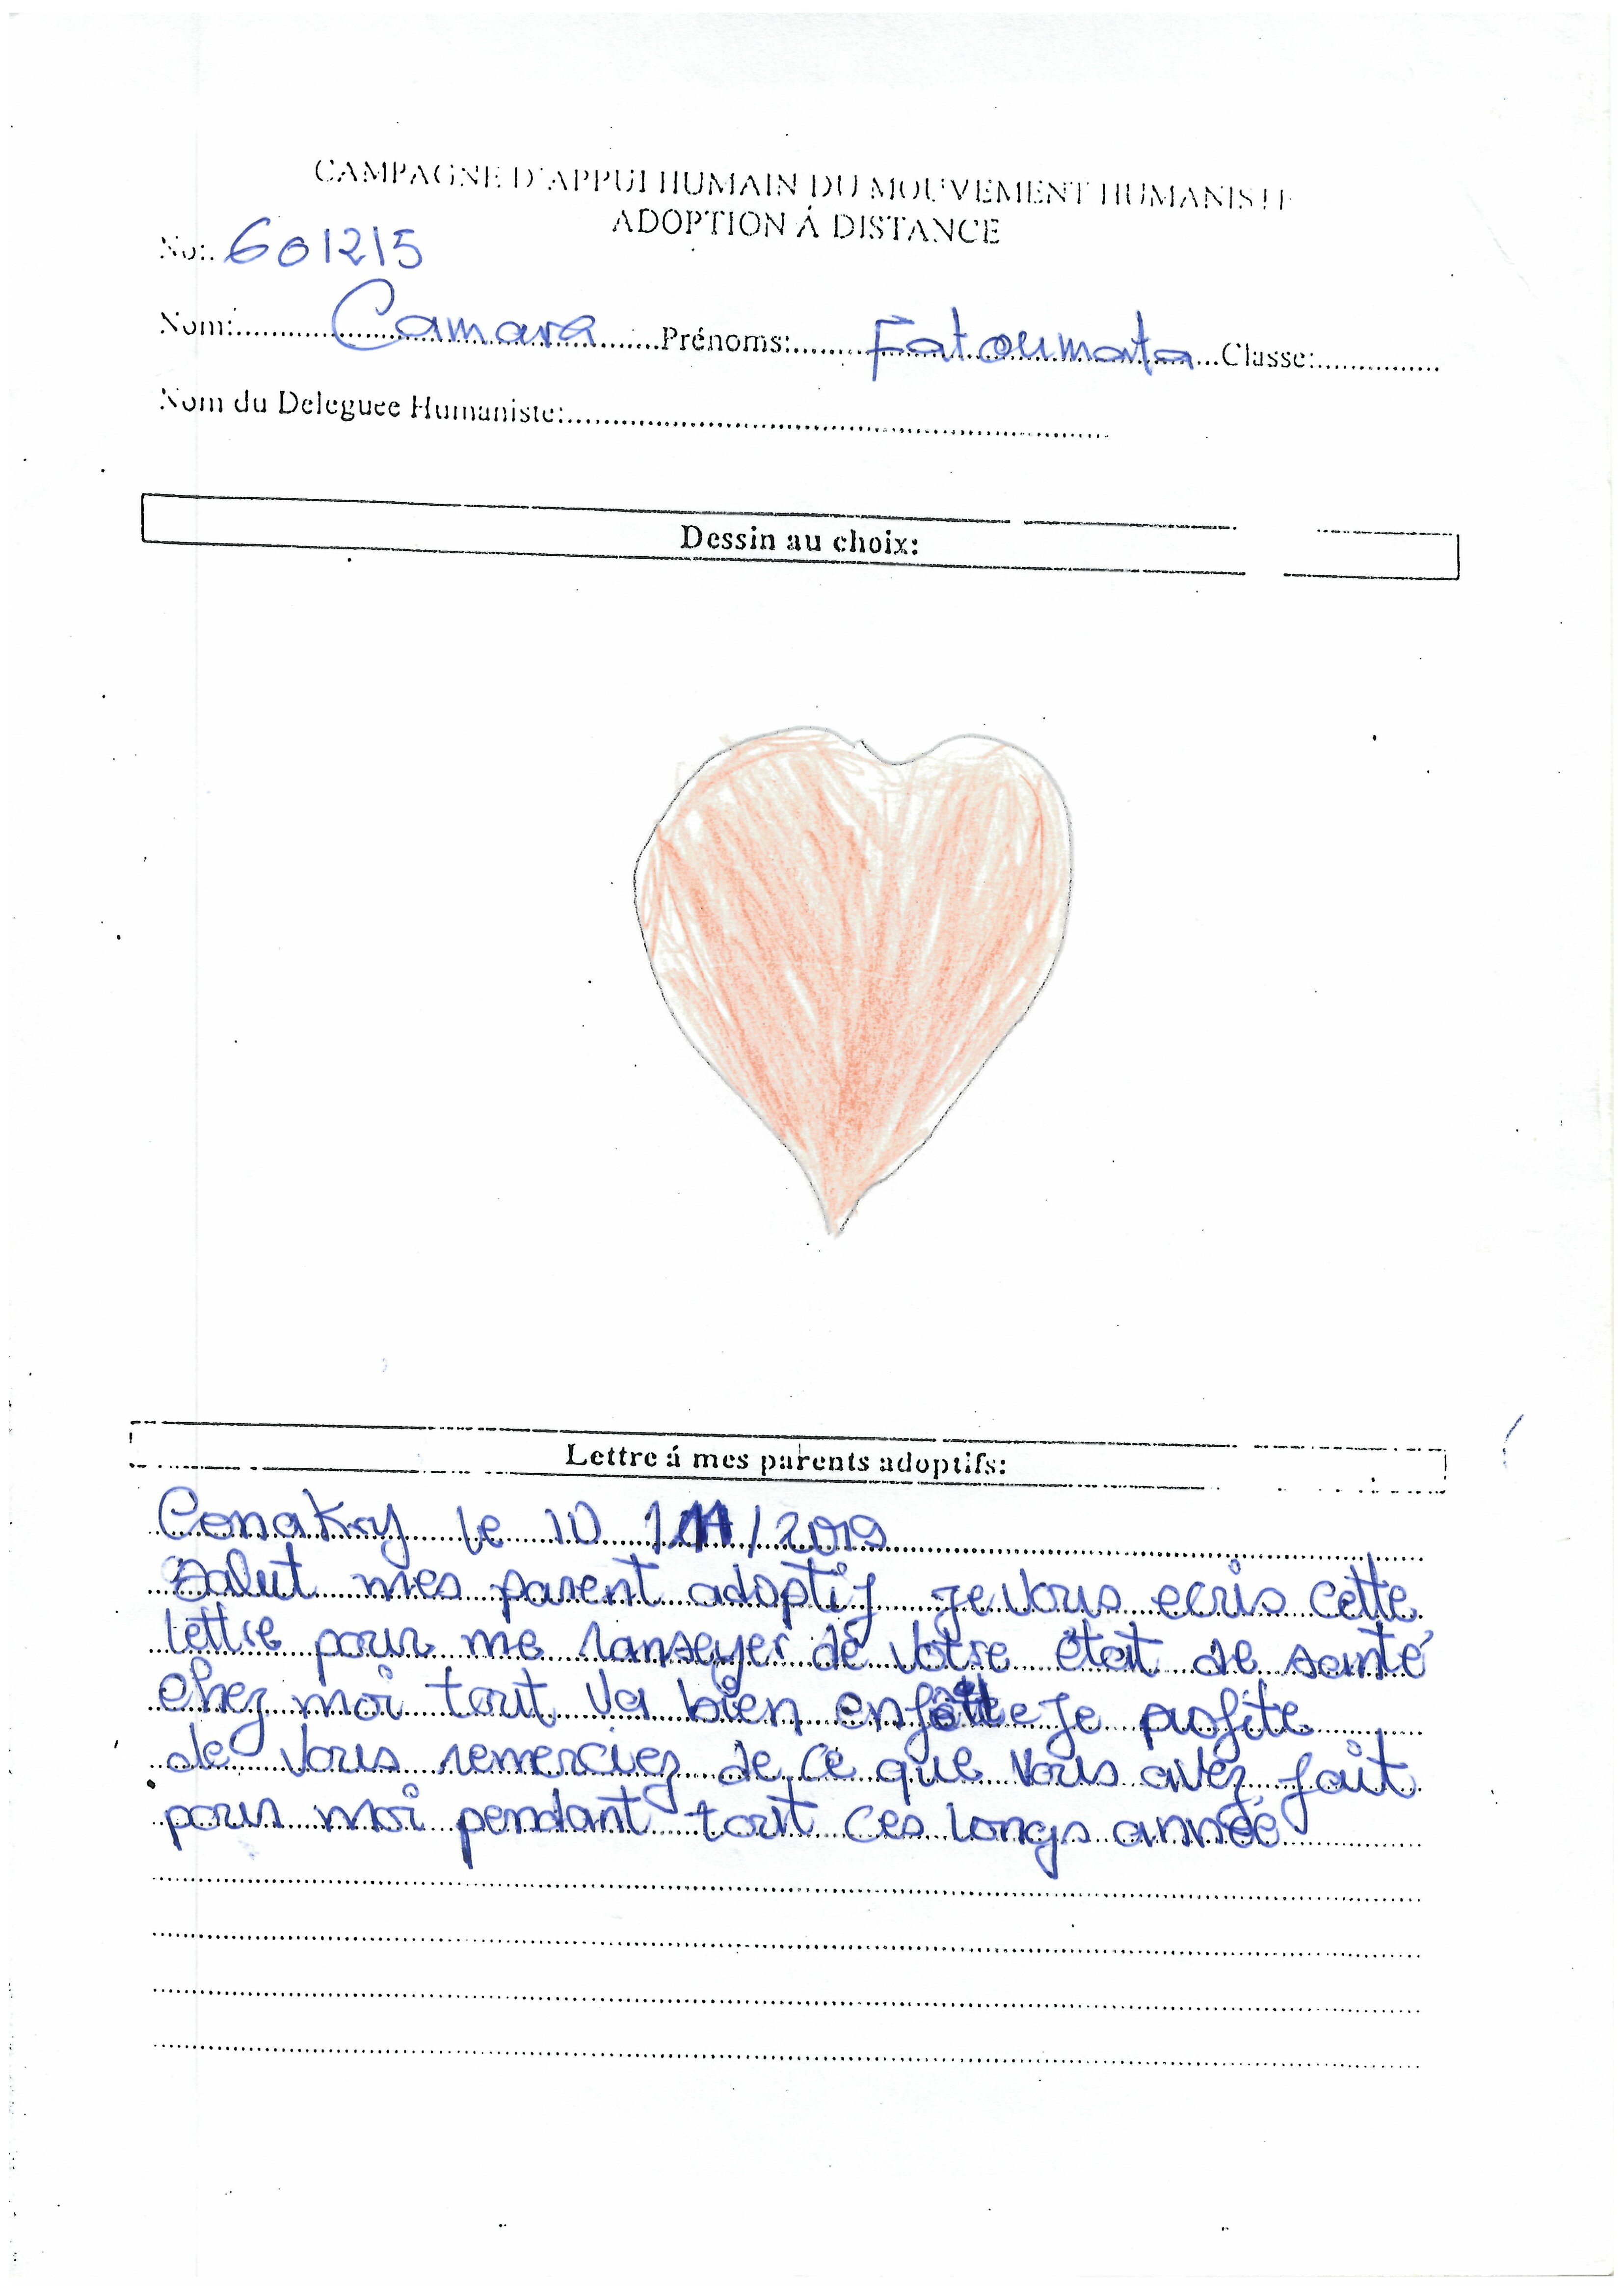 CAMPAGNE D'APPUI HUMAIN DU MOUVEMENT HUMANISTE
ADOPTION Á DISTANCE
No:. 601215
Nom:........Camara........Prénoms:........Fatoumata...Classe:................
Nom du Deleguee Humaniste:................................
Dessin au choix:
Lettre á mes parents adoptifs:
Conakry le 10 /11/2019
Salut mes parent adoptif je vous ecris cette
lettre pour me ranseyer de votre état de santé
chez moi tout va bien Je profite
de vous remerciez de ce que vous avez fait
pour moi pendant tout ces longs année